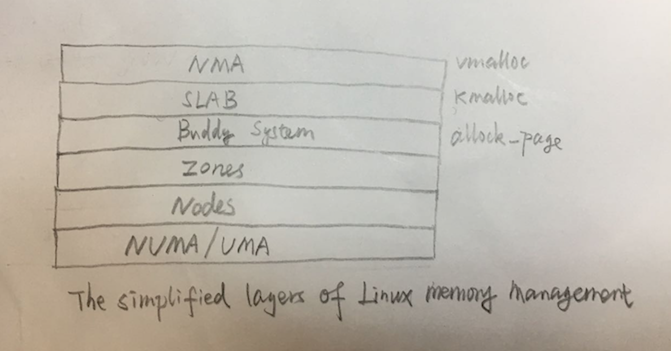 NMA vmalloc
SLAB kmalloc
Buddy System allock_page
Zones
Nodes
NUMA/UMA
The simplified layers of Linux memory management